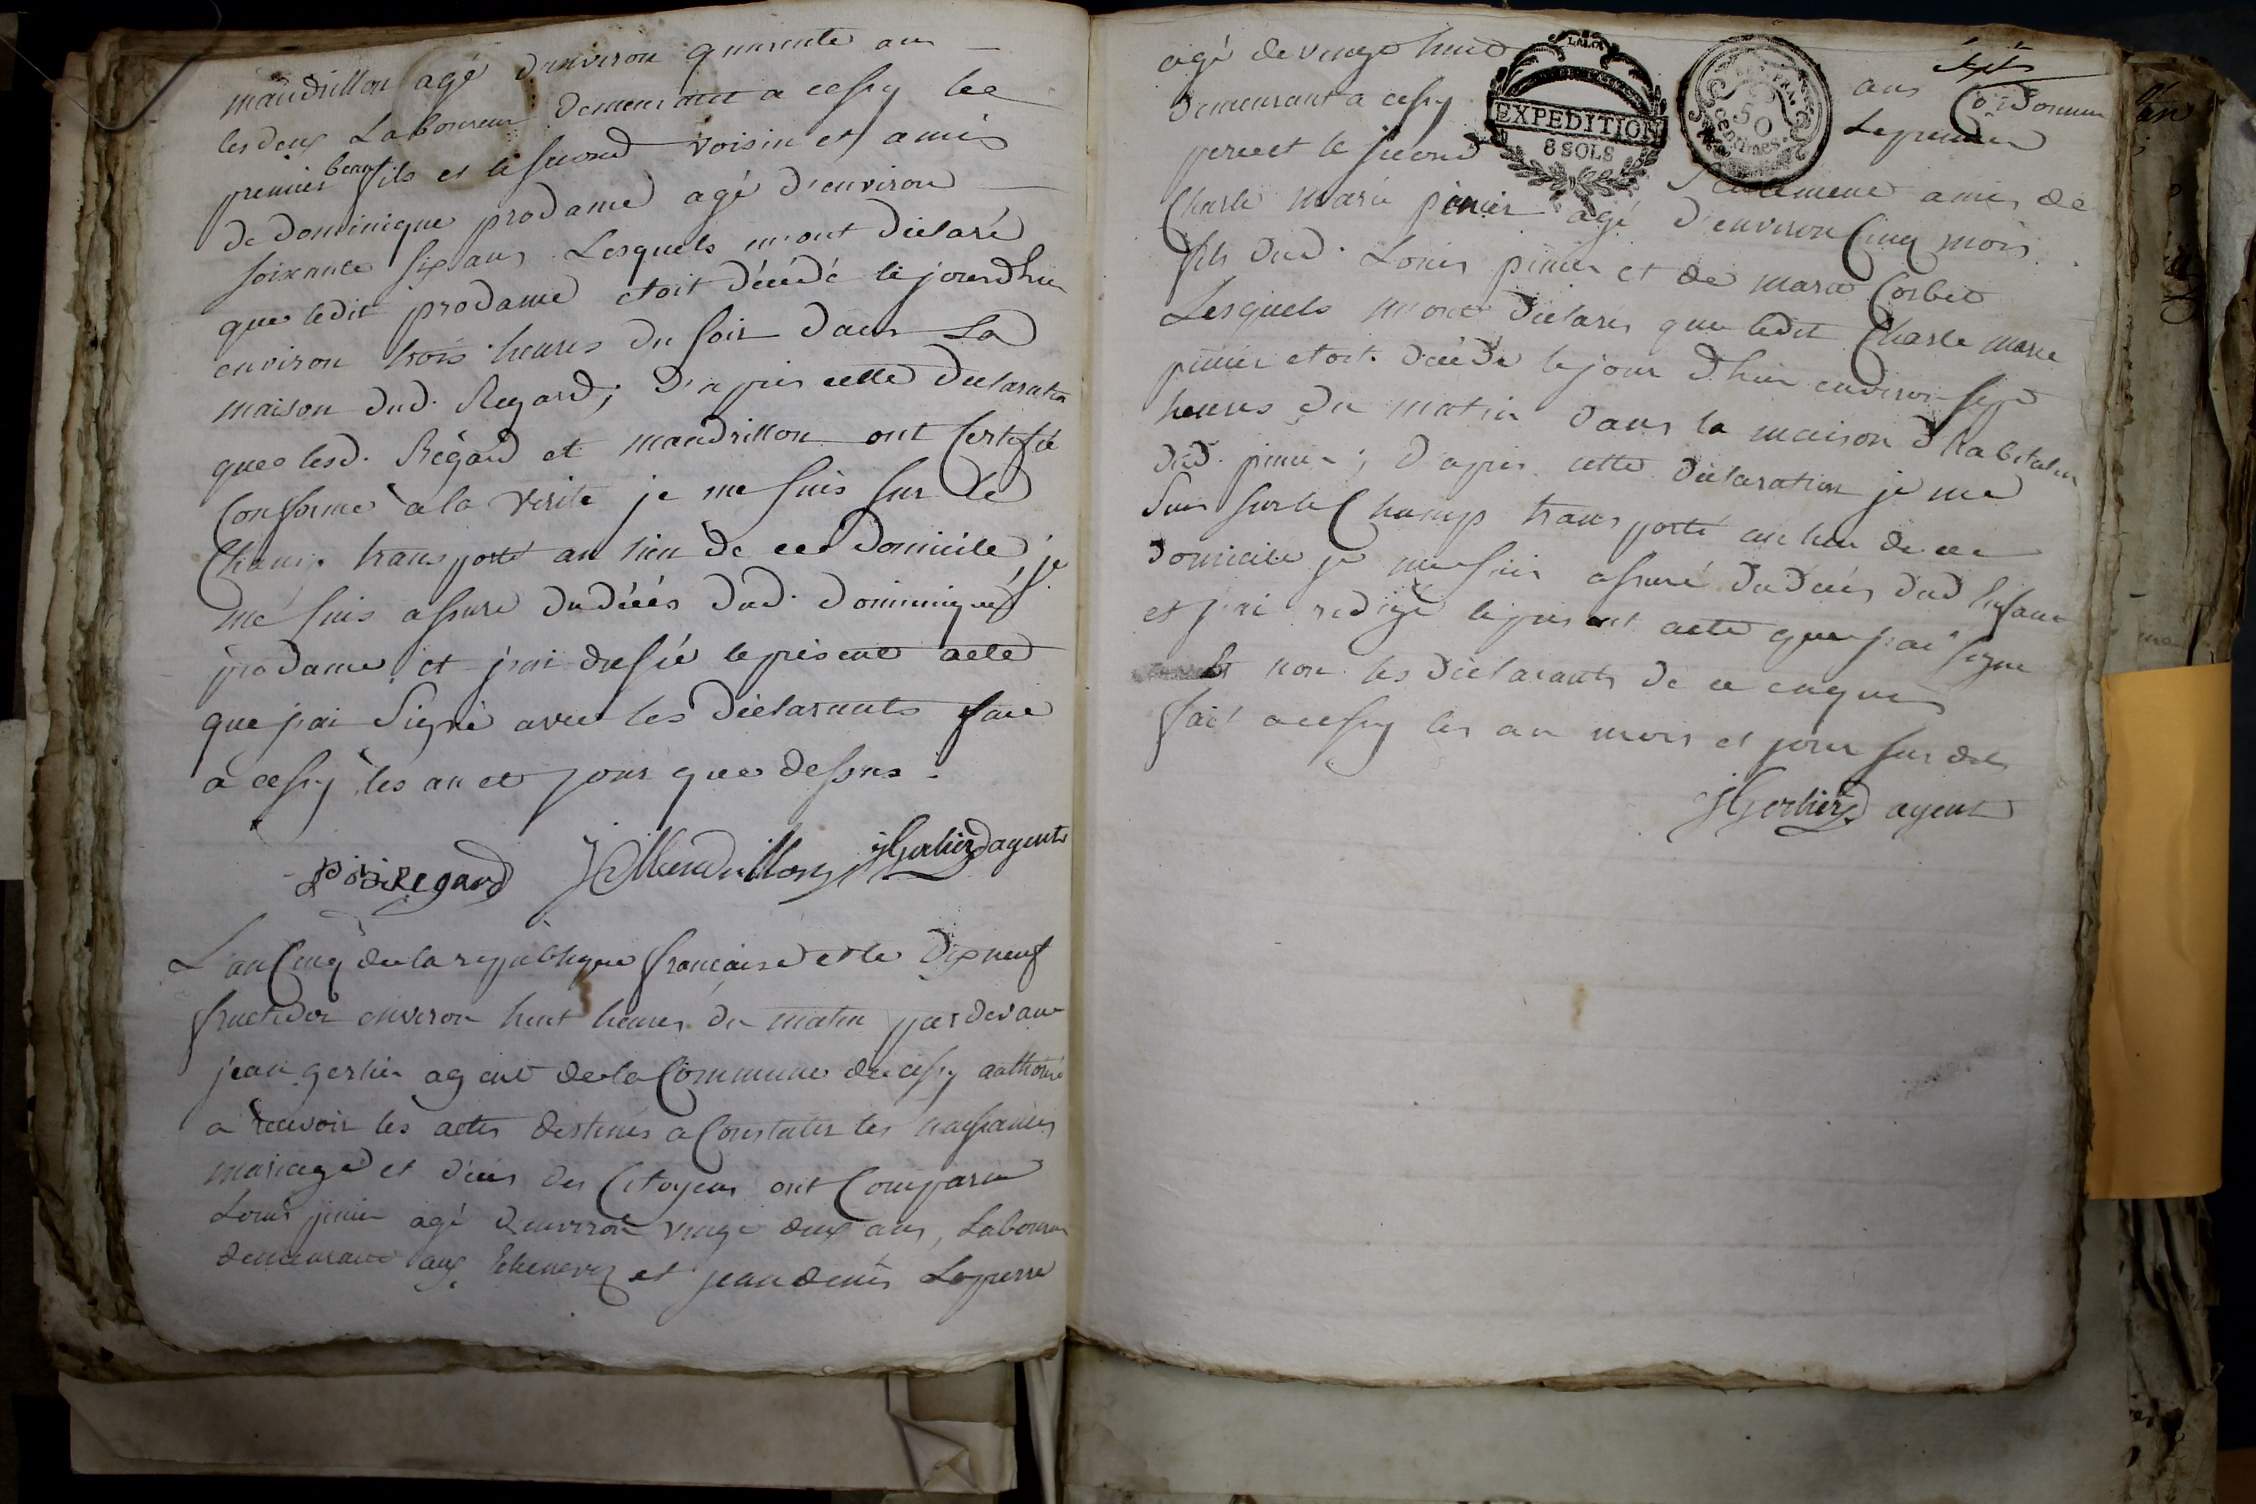 mandrillon agé d'environ quarente ans
les deux Laboureur demeurant a cessy le
premier beau fils et le second voisin et amis
de dominique prodame agé d'environ
soixante six ans Lesquels m'ont déclaré
que ledit prodame etoit décédé le jourdhui
environ trois heures du soir dans La
maison dud. Regard; d'apres cette declaration
que lesd. Régard et mandrillon ont Certifié
Conforme à la Verité je me suis sur le
Champ transporté au lieu de ce domicile, je
me suis assuré du décés dud. dominique
prodame et j'ai dressé le présent acte
que j'ai Signé avec les déclarants fait
à cessy les an et jour que dessus.
Regard JCMandrillon JGerlier agent
L'an Cinq de la republique française et le dixneuf
fructidor environ huit heures du matin pardevant
jean gerlier agent de la Commune de cessy authorisé
a recevoir les actes destinés a Constater les naissances
mariage et décés des Citoyens ont Comparu
Louis pinier agé d'environ vingt deux ans, Laboureur
demeurant aux Echenevez et jean denis Lapierre
sept
agé de vingt huit ans
demeurant a cessy Le premier
pere et le second seulement amis de
Charle marie pinier agé d'environ Cinq mois
fils dud. Louis pinier et de marie Corbet
Lesquels m'ont déclarés que ledit Charle marie
pinier etoit décédé le jour d'hui environ sept
heures du matin dans la maison d'habitation
dud. pinier; d'apres cette déclaration je me
suis sur le Champ transporté au lieu de ce
domicile je me suis assuré du décés dud Enfant
et j'ai redigé le present acte que j'ai signé
Et non les déclarants de ce enquis
fait a cessy les an mois et jour sus dits
JGerlier agent
LA LOI
EXPEDITION
8 SOLS
50
Centimes